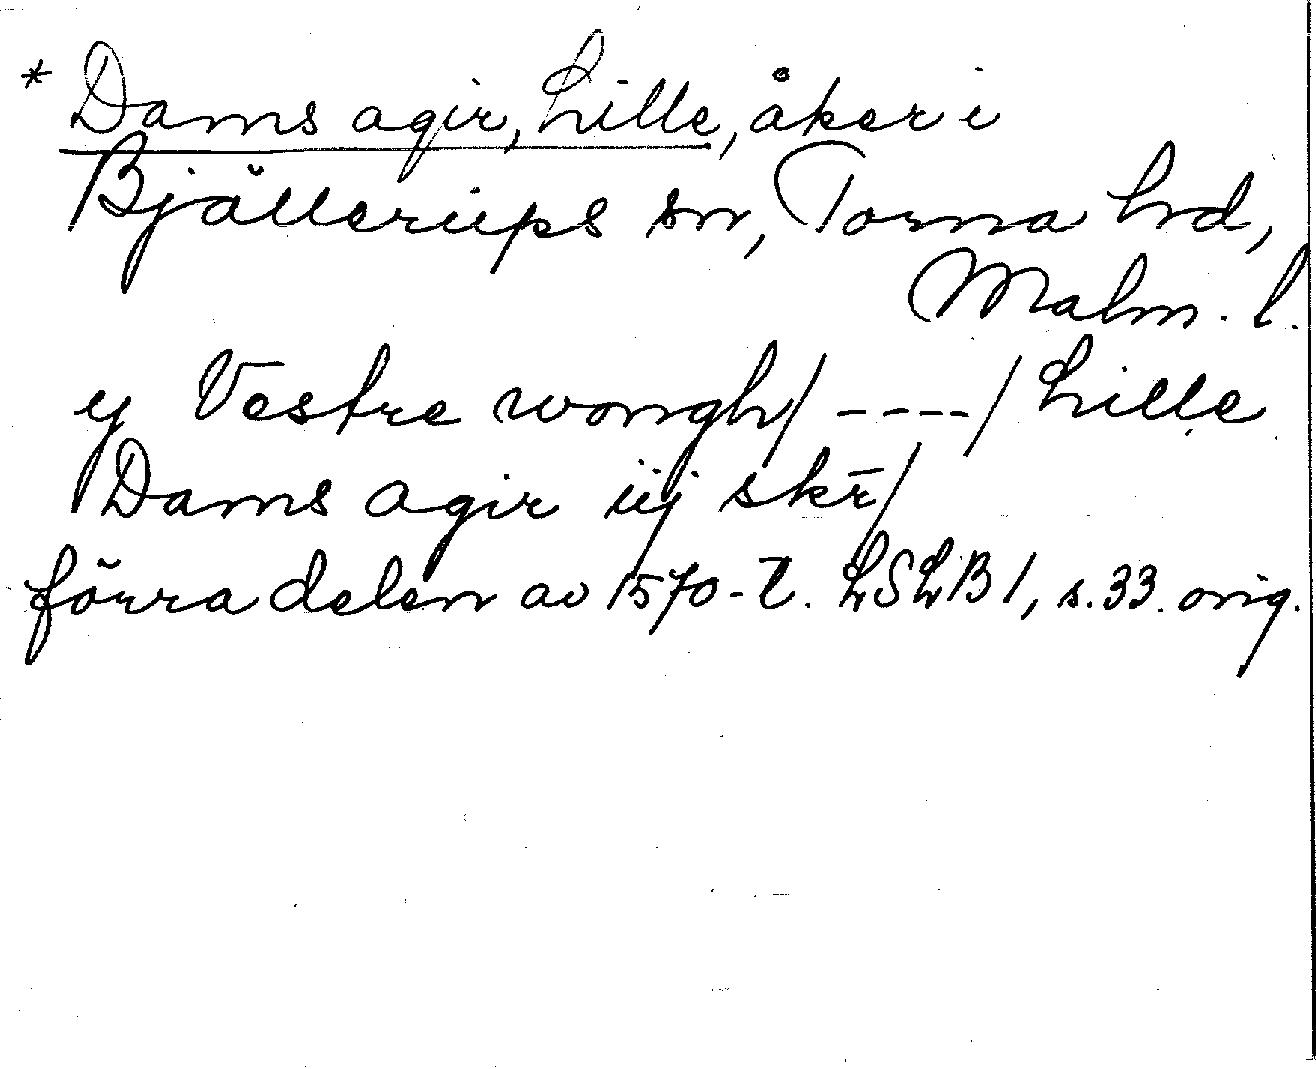 * Dams agir, Lille, åker i
Bjällerups sn, Torna hd,
Malm. l.
y Vestre wongh/ ----/ Lille
Dams agir iij skr̄/
förra delen av 1570-t. LSLB 1, s. 33. orig.